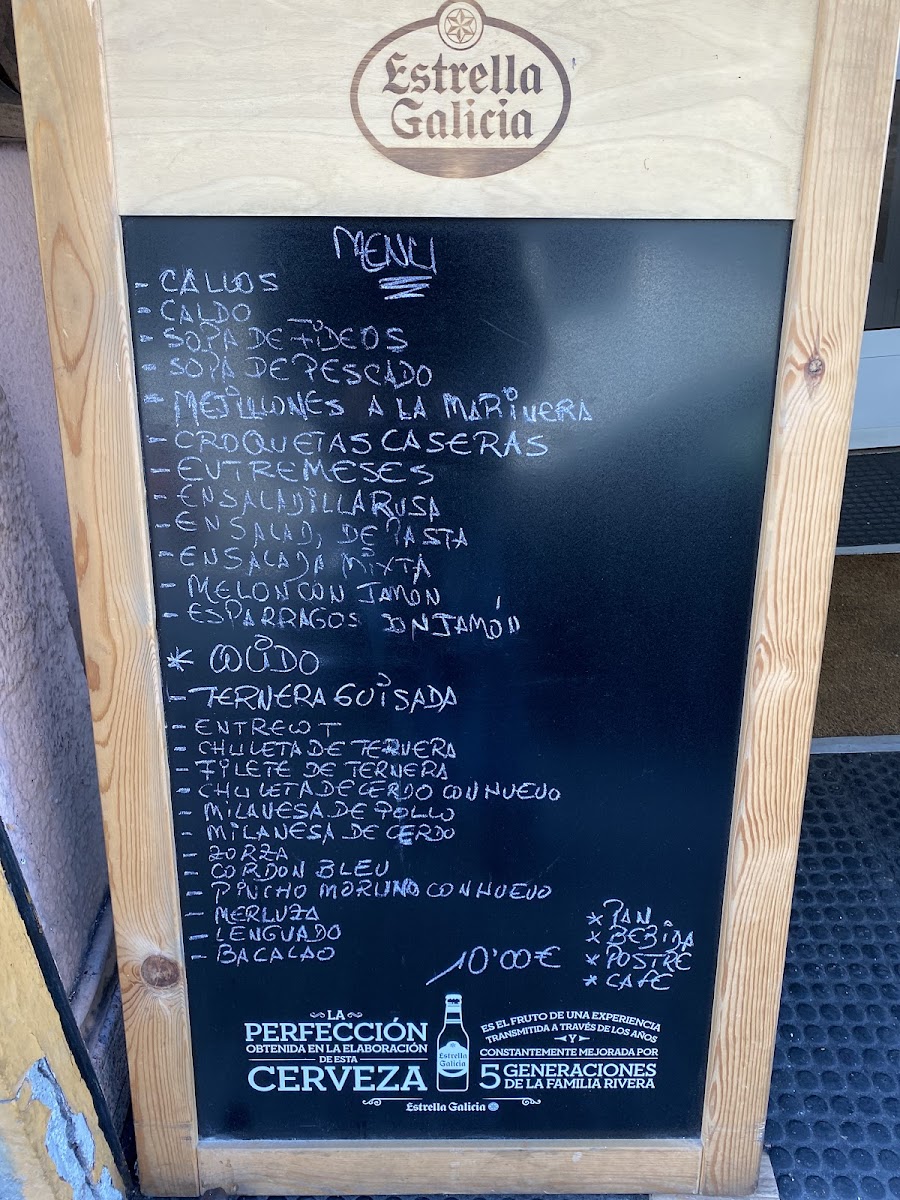 Estrella
Galicia
MENU
- CALLOS
- CALDO
- SOPA DE FIDEOS
- SOPA DE PESCADO
- MEJILLONES A LA MARINERA
- CROQUETAS CASERAS
- ENTREMESES
- ENSALADILLA RUSA
- ENSALAD, DE PASTA
- ENSALADA MIXTA
- MELON CON JAMON
- ESPARRAGOS CON JAMÓN
* COCIDO
- TERNERA GUISADA
- ENTRECOT
- CHULETA DE TERNERA
- FILETE DE TERNERA
- CHULETA DE CERDO CON HUEVO
- MILANESA DE POLLO
- MILANESA DE CERDO
- ZORZA
- CORDON BLEU
- PINCHO MORUNO CON HUEVO
- MERLUZA
- LENGUADO
- BACALAO
10'00€
* PAN
* BEBIDA
* POSTRE
* CAFE
LA
PERFECCIÓN
OBTENIDA EN LA ELABORACIÓN
DE ESTA
CERVEZA
Estrella
Galicia
ES EL FRUTO DE UNA EXPERIENCIA
TRANSMITIDA A TRAVÉS DE LOS AÑOS
Y
CONSTANTEMENTE MEJORADA POR
5 GENERACIONES
DE LA FAMILIA RIVERA
Estrella Galicia